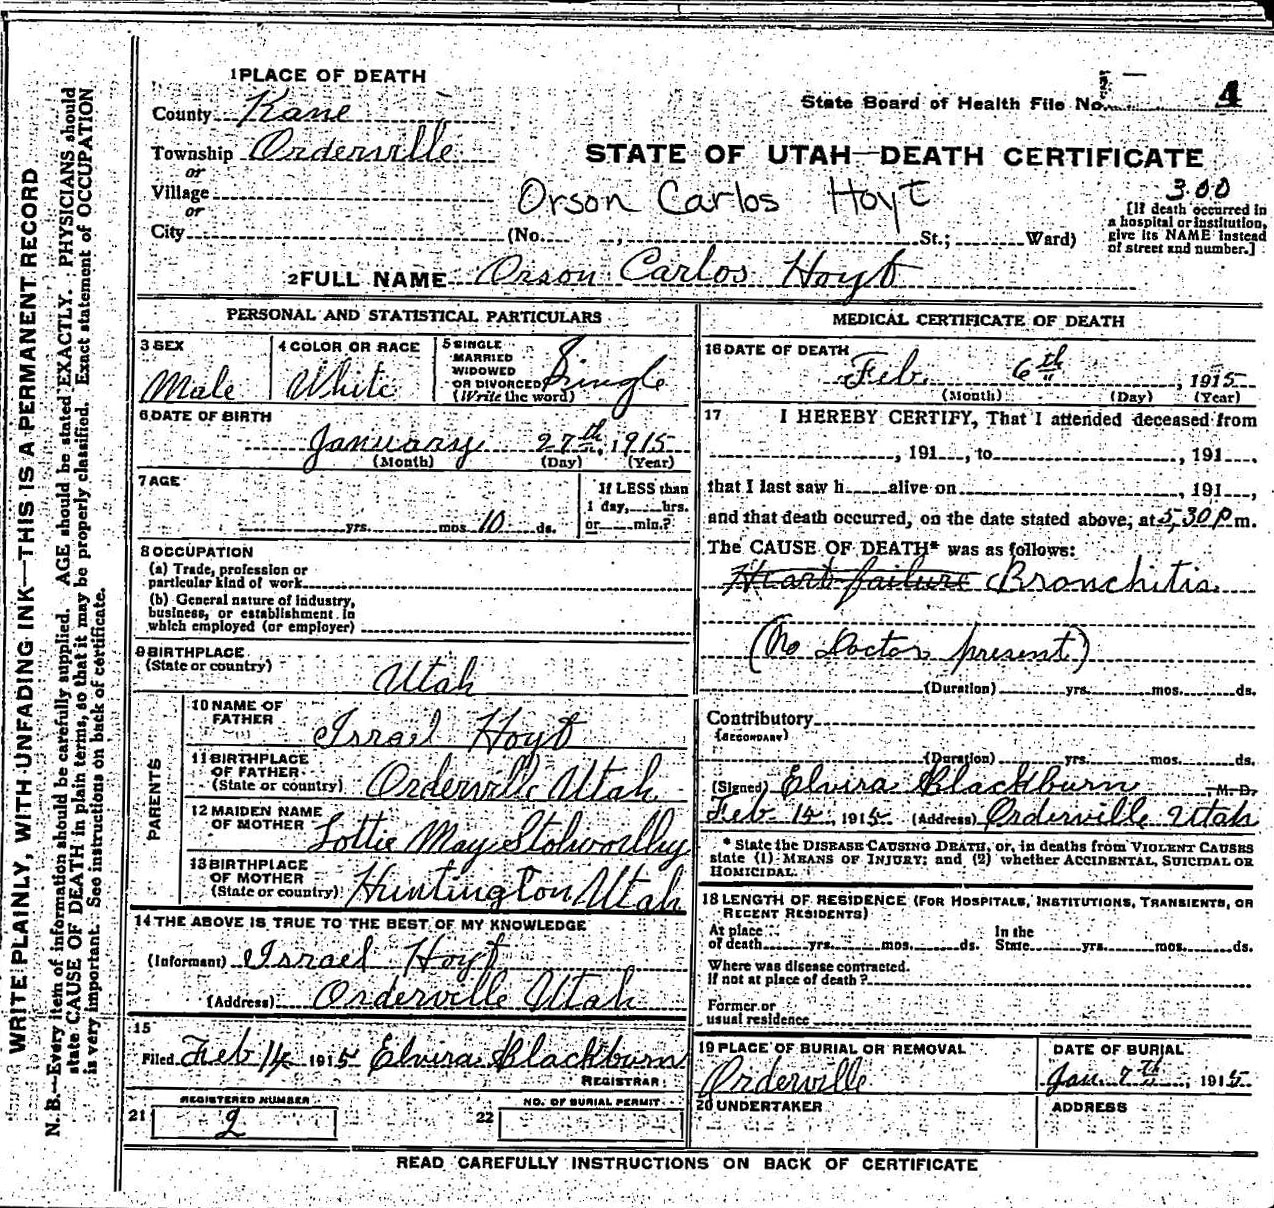 WRITE PLAINLY, WITH UNFADING INK—THIS IS A PERMANENT RECORD
N. B.—Every item of information should be carefully supplied. AGE should be stated EXACTLY. PHYSICIANS should
state CAUSE OF DEATH in plain terms, so that it may be properly classified. Exact statement of OCCUPATION
is very important. See instructions on back of certificate.
1 PLACE OF DEATH
County Kane
Township Orderville
or
Village
or
City
State Board of Health File No. 4
STATE OF UTAH—DEATH CERTIFICATE
Orson Carlos Hoyt
300
[If death occurred in
a hospital or institution,
give its NAME instead
of street and number.]
(No. , St.; Ward)
2 FULL NAME Orson Carlos Hoyt
PERSONAL AND STATISTICAL PARTICULARS
3 SEX
Male
4 COLOR OR RACE
White
5 SINGLE
MARRIED
WIDOWED
OR DIVORCED
(Write the word)
Single
6 DATE OF BIRTH
January 27th, 1915
(Month) (Day) (Year)
7 AGE
yrs. mos. 10 ds.
If LESS than
1 day, hrs.
or min.?
8 OCCUPATION
(a) Trade, profession or
particular kind of work
(b) General nature of industry,
business, or establishment in
which employed (or employer)
9 BIRTHPLACE
(State or country)
Utah
PARENTS
10 NAME OF
FATHER
Israel Hoyt
11 BIRTHPLACE
OF FATHER
(State or country)
Orderville Utah
12 MAIDEN NAME
OF MOTHER
Lottie May Stolworthy
13 BIRTHPLACE
OF MOTHER
(State or country)
Huntington Utah
14 THE ABOVE IS TRUE TO THE BEST OF MY KNOWLEDGE
(Informant) Israel Hoyt
(Address) Orderville Utah
15
Filed Feb 14 1915 Elvira Blackburn
REGISTRAR
21
REGISTERED NUMBER
2
22
NO. OF BURIAL PERMIT
MEDICAL CERTIFICATE OF DEATH
16 DATE OF DEATH
Feb. 6th, 1915
(Month) (Day) (Year)
17 I HEREBY CERTIFY, That I attended deceased from
, 191 , to , 191 ,
that I last saw h alive on , 191 ,
and that death occurred, on the date stated above, at 5,30 P.m.
The CAUSE OF DEATH* was as follows:
Heart failure Bronchitis
(No Doctor present)
(Duration) yrs. mos. ds.
Contributory
(SECONDARY)
(Duration) yrs. mos. ds.
(Signed) Elvira Blackburn M. D.
Feb 14, 1915 (Address) Orderville Utah
* State the DISEASE CAUSING DEATH, or, in deaths from VIOLENT CAUSES
state (1) MEANS OF INJURY; and (2) whether ACCIDENTAL, SUICIDAL OR
HOMICIDAL.
18 LENGTH OF RESIDENCE (FOR HOSPITALS, INSTITUTIONS, TRANSIENTS, OR
RECENT RESIDENTS)
At place
of death yrs. mos. ds.
In the
State yrs. mos. ds.
Where was disease contracted.
If not at place of death?
Former or
usual residence
19 PLACE OF BURIAL OR REMOVAL
Orderville
DATE OF BURIAL
Jan. 7th, 1915
20 UNDERTAKER
ADDRESS
READ CAREFULLY INSTRUCTIONS ON BACK OF CERTIFICATE